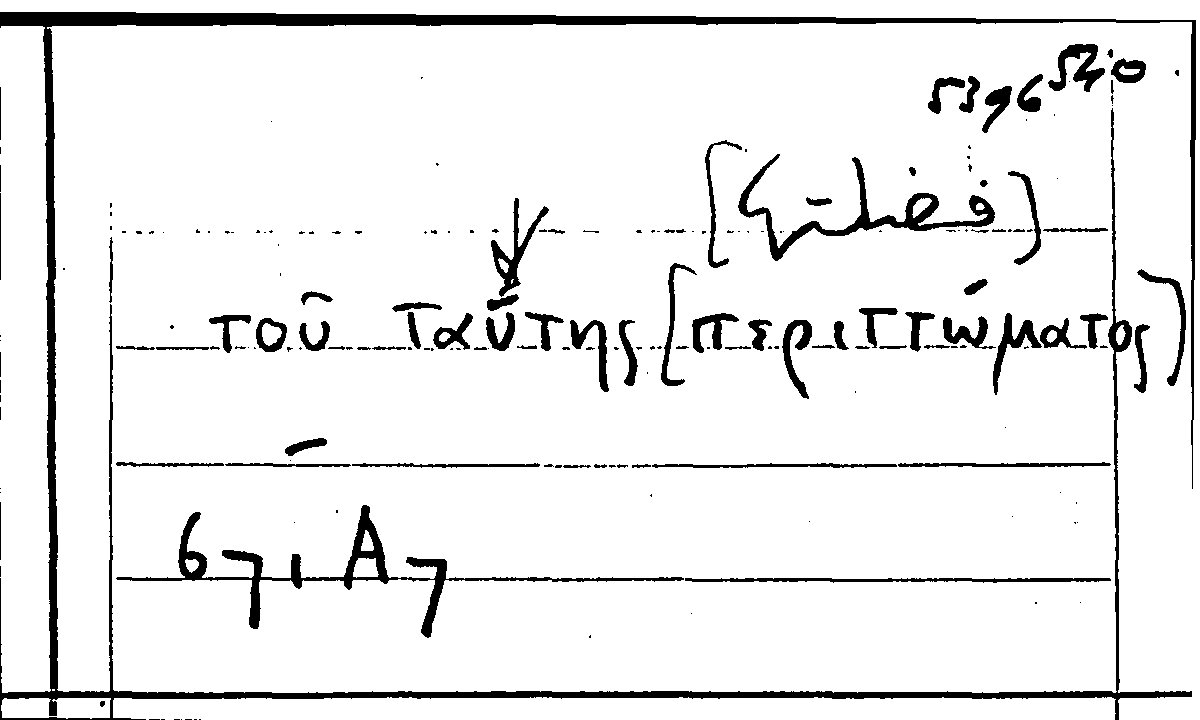 5396
[فضلتها]
τοῦ ταύτης [περιττώματος]
67, A7